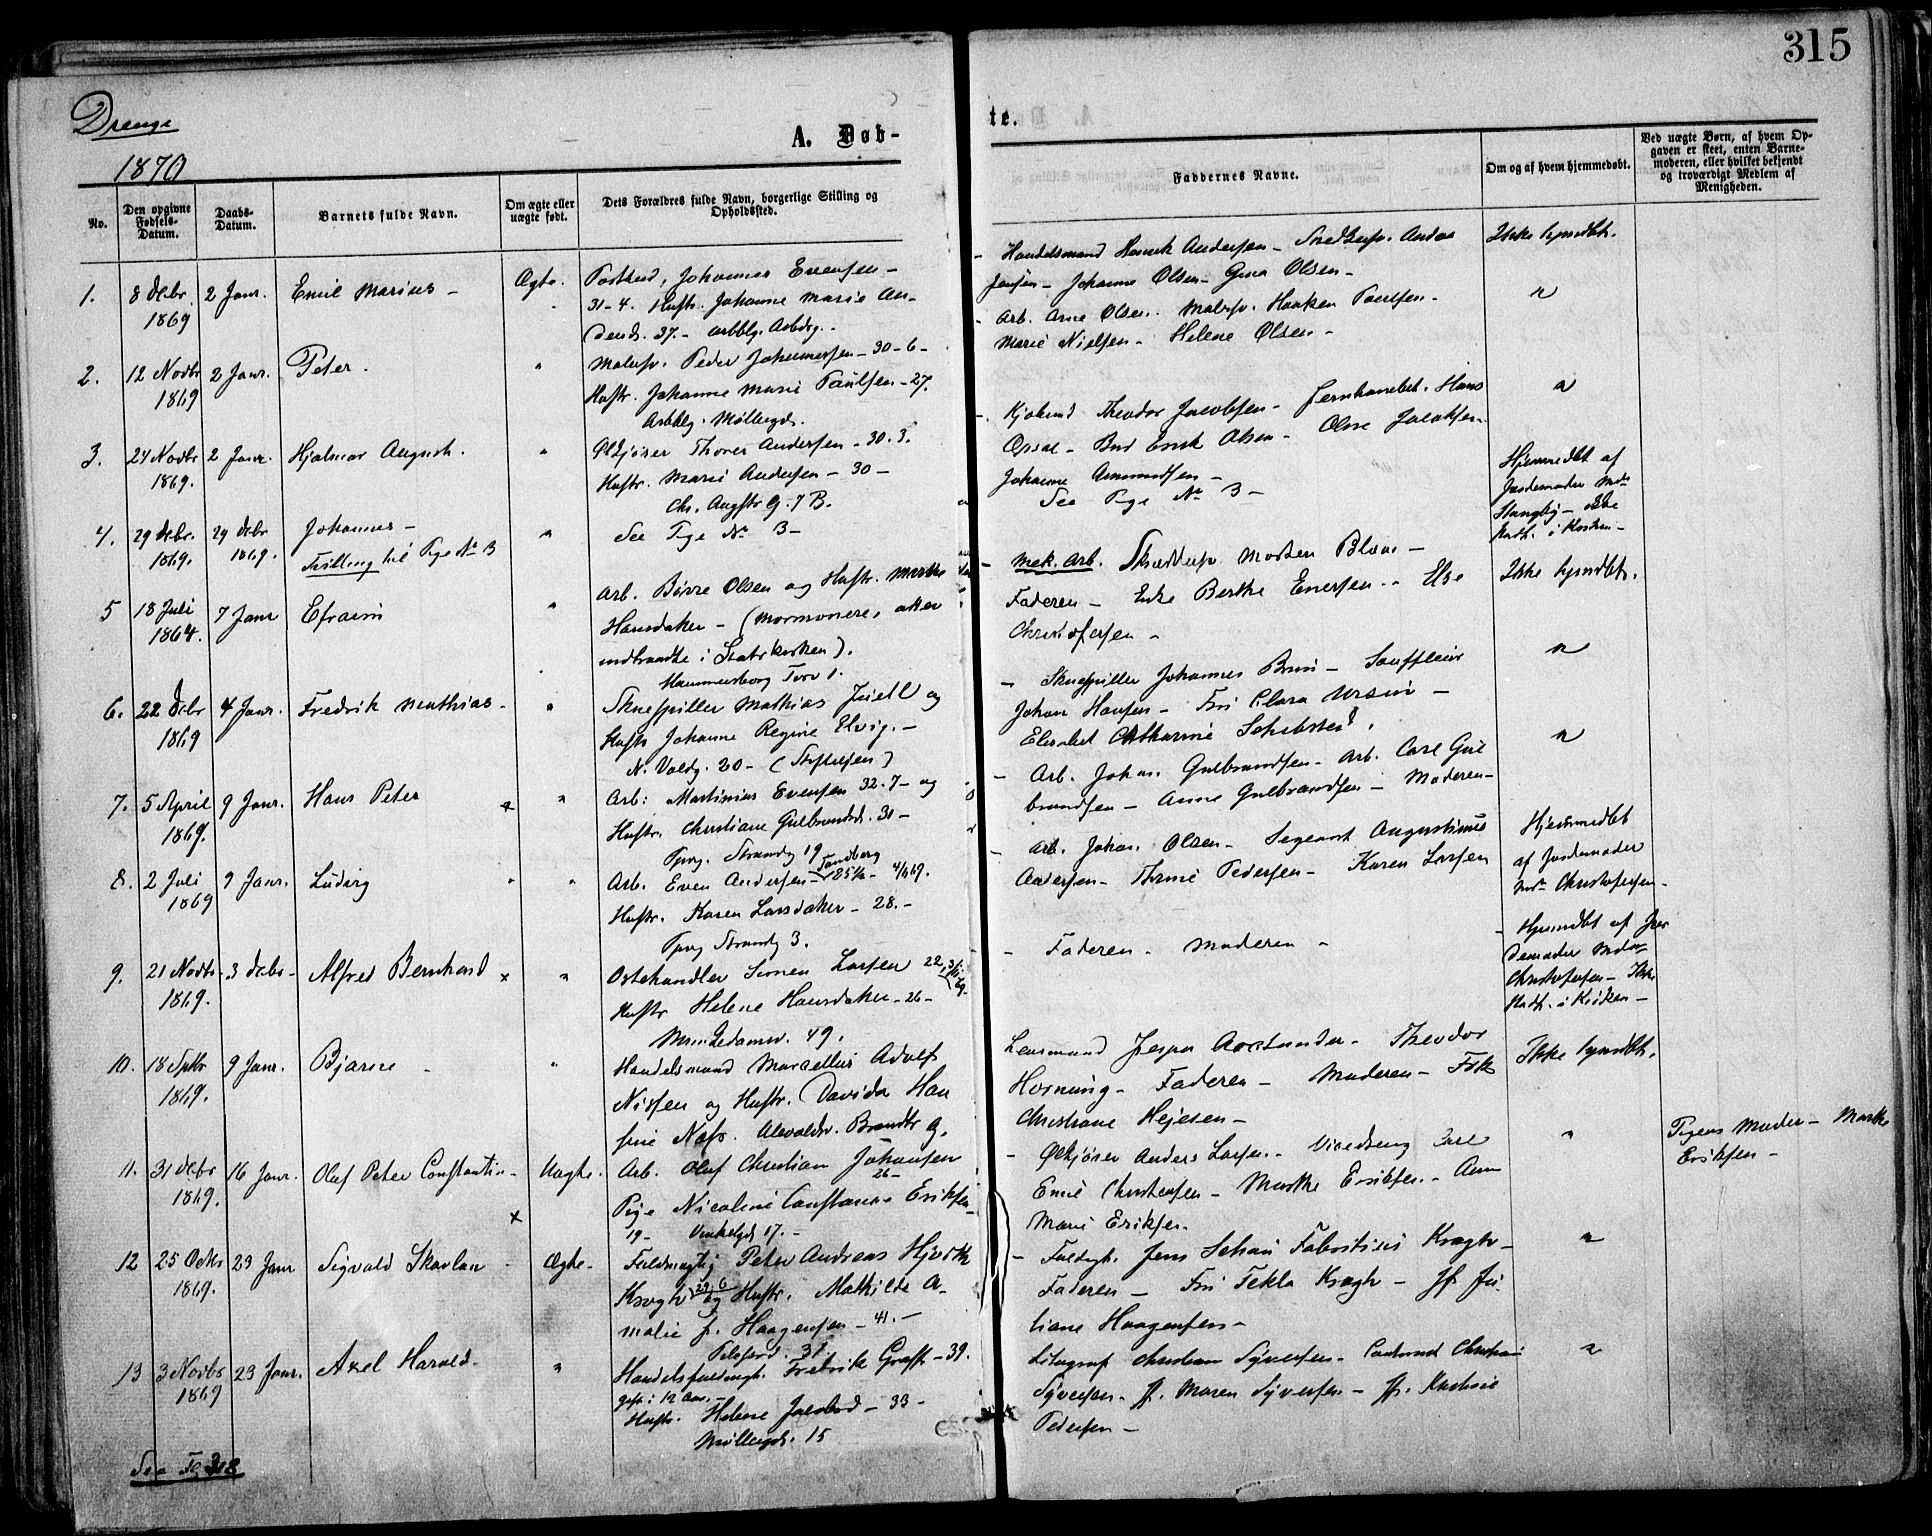 315
Drenge
1870
A. Døb-
te.
No.
Den opgivne Fødsels-Datum.
Daabs-Datum.
Barnets fulde Navn.
Om ægte eller uægte født.
Dets Forældres fulde Navn, borgerlige Stilling og Opholdssted.
Faddernes Navne.
Om og af hvem hjemmedøbt.
Ved uægte Børn, af hvem Op-
gaven er skeet, enten Barne-
moderen, eller hvilket bekjendt
og troværdigt Medlem af
Menigheden.
1. 8 Debr 1869 2 Janr. Emil Marius - Ægte.
Johannes Evensen -
31-4. Hustr. Johanne Marie An-
37.- Arbdg.
Handelsmand Henrik Andersen -
Jensen - Johanne Olsen - Gina Olsen -
Ikke hjmdbt.
2. 12 Novbr 1869 2 Janr. Peter.
Malersv. Peder Johannesen - 30-6-
Hustr. Johanne Marie Paulsen - 27.
Møllergd.
Arb. Arne Olsen. Malersv. Haaken Paulsen -
Marie Nielsen - Helene Olsen -
3. 24 Novbr 1869. 2 Janr. Hjalmar August.
Ølkjører Thorer Andersen - 30.3.
Hustr. Marie Andersen - 30 -
Chr. Augsts G. 7 B.
Theodor Jacobsen - Jernhandlet. Hans
Opsal - Bud Erik Olsen - Oline Jacobsen
Johanne Amundsen -
Hjemmedbt af
Jordemoder Mdm
Stangby - ikke
i Kirken -
4. 29 Debr. 1869. 29 Debr 1869. Johannes -
Tvilling til Pige No 3
See Pige No 3 -
See Pige No 3 -
5 18 Juli 1864. 7 Janr Efraim
Arb. Børre Olsen og Hustr. Marthe
Hansdatter - (Mormonere, atter
indtraadte i Statskirken).
Hammersborg Torv 1.
Mek. Arb. Morten Blom -
Faderen - Enke Berthe Enersen - Else
Christofersen -
Ikke hjmdbt.
6. 22 Debr 1869 4 Janr. Fredrik Mathias -
Skuespiller Mathias Juell og
Hustr Johanne Regine Elvig. -
N. Voldg. 20 - (Stiftelsen)
Skuespiller Johannes Brun - Souffleur
Johan Hansen - Frk Clara Ursin -
Elisabet Catharine Schibsted.
7. 5 April 1869. 9 Janr. Hans Peter
Arb: Martinius Evensen 32.7 - og
Hustr. Christiane Gulbrandsd. 31 -
Tyvg. Strandg 19
Arb. Johan. Gulbrandsen - Arb. Carl Gul
brandsen - Anne Gulbrandsen - Moderen -
8. 2 Juli 1869 9 Janr. Ludvig
Arb. Even Andersen -
Hustr. Karen Larsdatter - 28. -
Tyvg Strandg 3.
Arb. Johan. Olsen - Sergeant Augustinus
Andersen - Thrine Pedersen - Karen Larsen
Hjemmedbt
af Jordemoder
Mdm Christofersen -
9. 21 Novbr 1869. 3 Debr - Alfred Bernhard x
Ostehandler Simen Larsen 22
Hustr Helene Hansdatter - 26 -
49.
Faderen - Moderen -
Hjmmdbt af Jor
demoder Mdm
Christofersen - Ikke
i Kirken -
10. 18 Sptbr 1869. 9 Janr. Bjarne
Handelsmand Marcellus Adolf
Nissen og Hustr. Davida Han
sine Næss. Brandts G.
Lensmand Jesper - Theodor
Hornung - Faderen - Moderen - Frk
Christiane Hejesen -
Ikke hjmdbt.
11. 31 Debr 1869. 16 Janr. Olaf Peter Constantin - x Uægte.
Arb. Olaf Christian Johansen
26 -
Pige Nicoline Constance Eriksen
19 - Vinkelgd 17. -
Ølkjører Anders Larsen - Carl
Emil Christensen - Marthe Eriksen - Ann
Marie Eriksen.
Pigens Moder - Marthe
Eriksen -
12 25 Octbr 1869. 23 Janr Sigvald Skavlan - Ægte -
Fuldmægtig Peter Andreas Hjorth
Kragh 29.6 og Hustr. Mathilde A-
malie f. Haagensen - 41. -
Pilestræd. 31.
Fuldmgt. Jens Schou Fabritius Kragh -
Faderen - Frk Tekla Kragh - Jf. Ju-
liane Haagensen -
13 3 Novbr 1869 23 Janr. Axel Harald -
Handelsfuldmgt. Fredrik Graff - 39.
gift i 12 Aar. -
Hustr. Helene Jacobsd - 33 -
Møllergd. 15
Litograf Christian Syversen - Christian
Syversen - Jf. Maren Syversen - Jf.
Pedersen -
See Fl 318